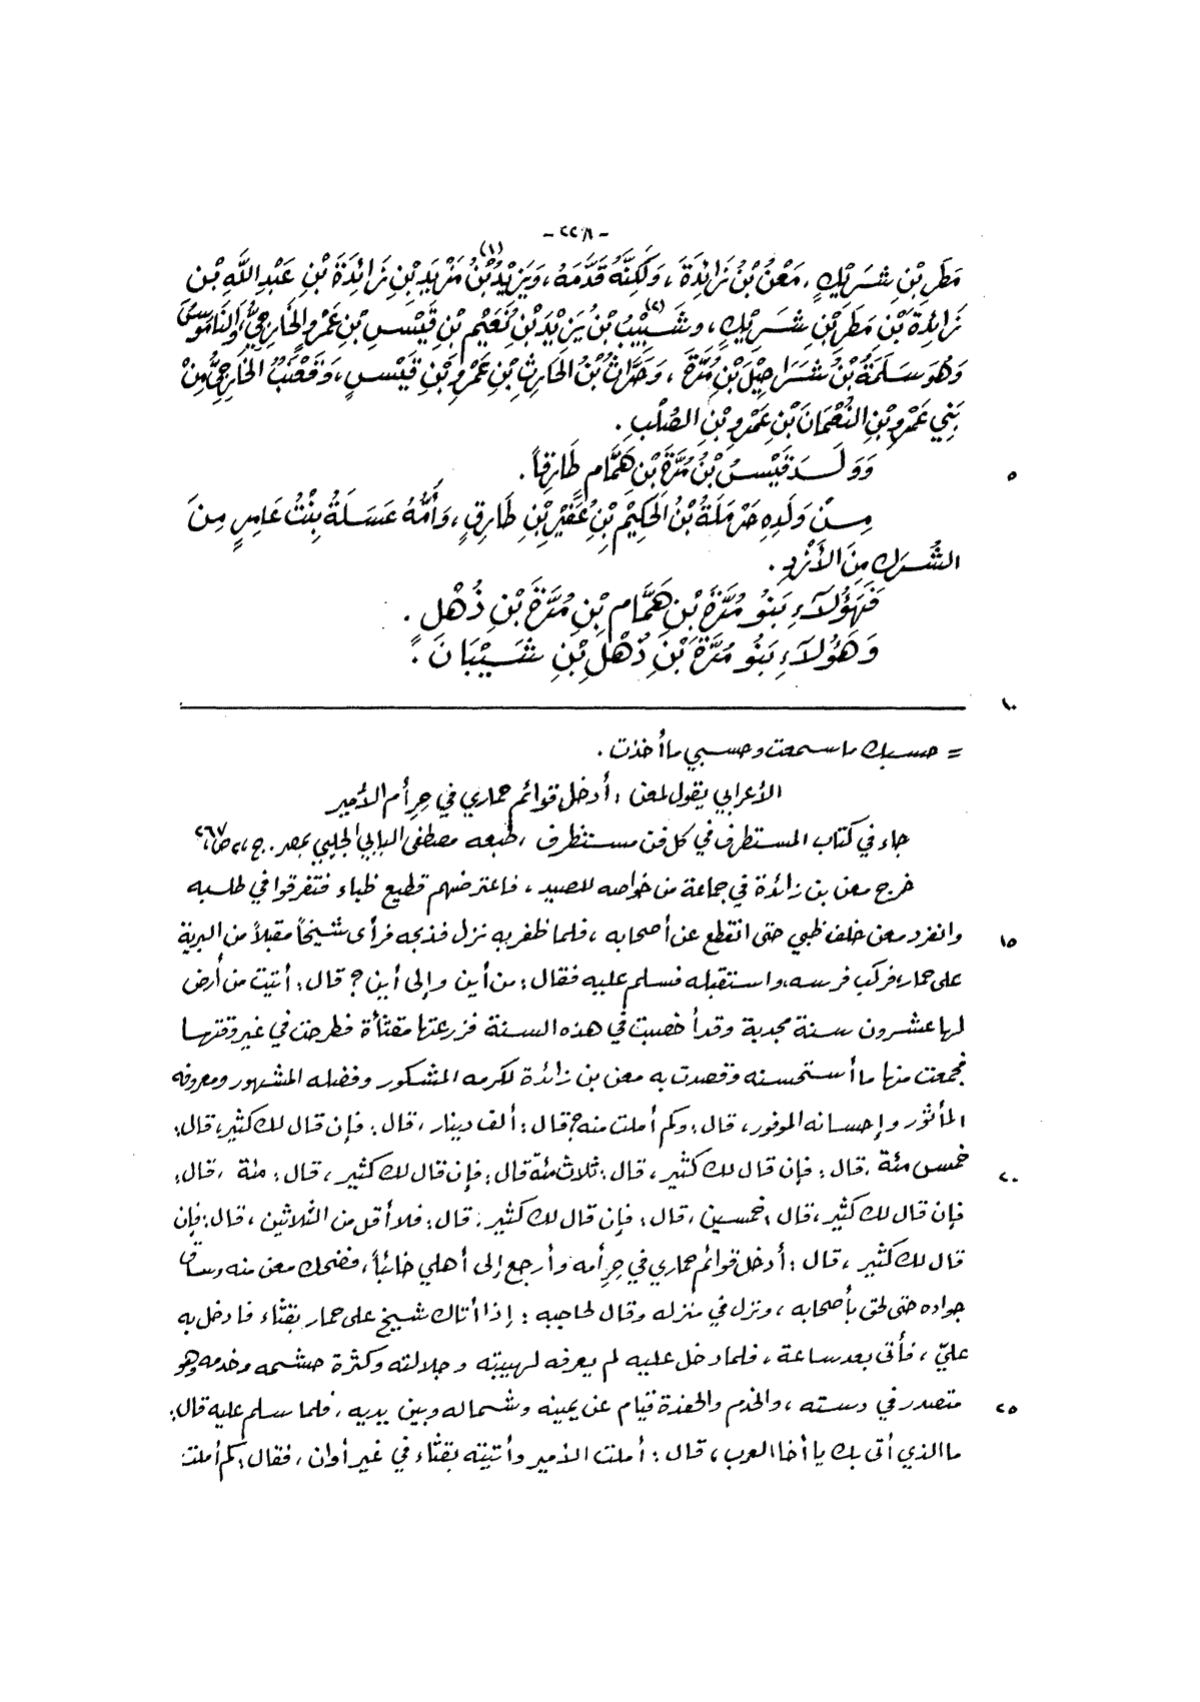 - ٢٢٨ -
مَطَرِ بْنِ شَرِيْكٍ، مَعْنُ بْنُ زَائِدَةَ، وَلَكِنَّهُ قَدَّمَهُ، وَيَزِيْدُ بْنُ مَزْيَدِ بْنِ زَائِدَةَ بْنِ عَبْدِ اللَّهِ بْنِ (١)
زَائِدَةَ بْنِ مَطَرِ بْنِ شَرِيْكٍ، وشَبِيْبُ بْنُ يَزِيْدَ بْنِ نُعَيْمِ بْنِ قَيْسِ بْنِ عَمْرٍو الخَارِجِيُّ، (٢) وَالنَّامُوسُ
وَهُوَ سَلَمَةُ بْنُ شَرَاحِيْلَ بْنِ مُرَّةَ، وَحَرَّاثُ بْنُ الحَارِثِ بْنِ عَمْرِو بْنِ قَيْسٍ، وَقَعْنَبٌ الخَارِجِيُّ مِنْ
بَنِي عَمْرِو بْنِ النُّعْمَانَ بْنِ عَمْرِو بْنِ الصُّلْبِ.
وَوَلَدَ قَيْسُ بْنُ مُرَّةَ بْنِ هَمَّامٍ طَارِقاً. ٥
مِنْ وَلَدِهِ حَرْمَلَةُ بْنُ الحَكِيْمِ بْنِ عُفَيْرِ بْنِ طَارِقٍ، وَأُمُّهُ عَسَلَةُ بِنْتُ عَامِرٍ مِنَ
الشُّرَكِ مِنَ الأَزْدِ.
فَهَؤُلَاَءِ بَنُو مُرَّةَ بْنِ هَمَّامِ بْنِ مُرَّةَ بْنِ ذُهْلٍ.
وَهَؤُلاَءِ بَنُو مُرَّةَ بْنِ ذُهْلِ بْنِ شَيْبَانَ.
١٠
= حسبك ما سمعت وحسبي ما أخذت.
الأعرابي يقول لمعن: أدخل قوائم حماري في حِرِ أم الأمير
جاء في كتاب المستطرف في كل فن مستظرف، طبعه مصطفى البابي الحلبي بمصر. ج، ٢، ص، ٢٦٧
خرج معن بن زائدة في جماعة من خواصه للصيد، فاعترضهم قطيع ظباء فتفرقوا في طلبه
وانفرد معن خلف ظبي حتى انقطع عن أصحابه، فلما ظفر به نزل فذبحه فرأى شيخاً مقبلاً من البرية ١٥
على حمار، فركب فرسه، واستقبله فسلم عليه فقال: من أين وإلى أين؟ قال: أتيت من أرض
لها عشرون سنة مجدبة وقد أخصبت في هذه السنة فزرعتها مقثأة فطرحت في غير وقتها
فجمعت منها ما أستحسنه وقصدت به معن بن زائدة لكرمه المشكور وفضله المشهور ومعروفه
المأثور وإحسانه الموفور، قال: وكم أملت منه؟ قال: ألف دينار، قال: فإن قال لك كثير، قال:
خمس مئة، قال: فإن قال لك كثير، قال: ثلاث مئة قال: فإن قال لك كثير، قال: مئة، قال: ٢٠
فإن قال لك كثير، قال: خمسين، قال: فإن قال لك كثير. قال: فلا أقل من الثلاثين، قال: فإن
قال لك كثير، قال: أدخل قوائم حماري في حِرِ أمه وأرجع إلى أهلي خائباً، فضحك معن منه وساق
جواده حتى لحق بأصحابه، ونزل في منزله وقال لحاجبه: إذا أتاك شيخ على حمار بقثّاء فادخل به
عليّ، فأتى بعد ساعة، فلما دخل عليه لم يعرفه لهيبته وجلالته وكثرة حشمه وخدمه وهو
متصدر في دسته، والخدم والحفدة قيام عن يمينه وشماله وبين يديه، فلما سلم عليه قال: ٢٥
ما الذي أتى بك يا أخا العرب، قال: أملت الأمير وأتيته بقثّاء في غير أوان، فقال: كم أملت